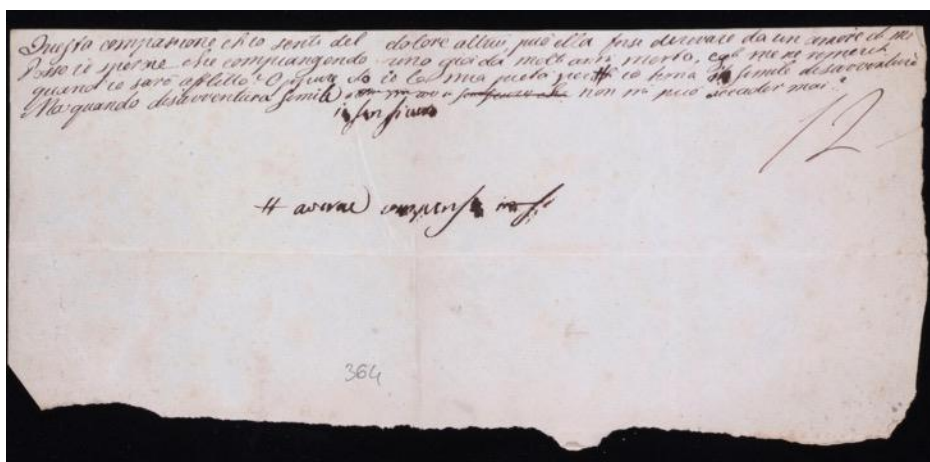 Questa compassione ch'io sento del dolore altrui, può ella forse derivare da un amore di me
Posso io sperare che compiangendo uno già da molt'anni morto, egli me ne
quando io sarò afflitto? Oppure do io la mia pietà io tema simile disavventura
Ma quando disavventura simile non mi può accader mai?
12
# averne
364